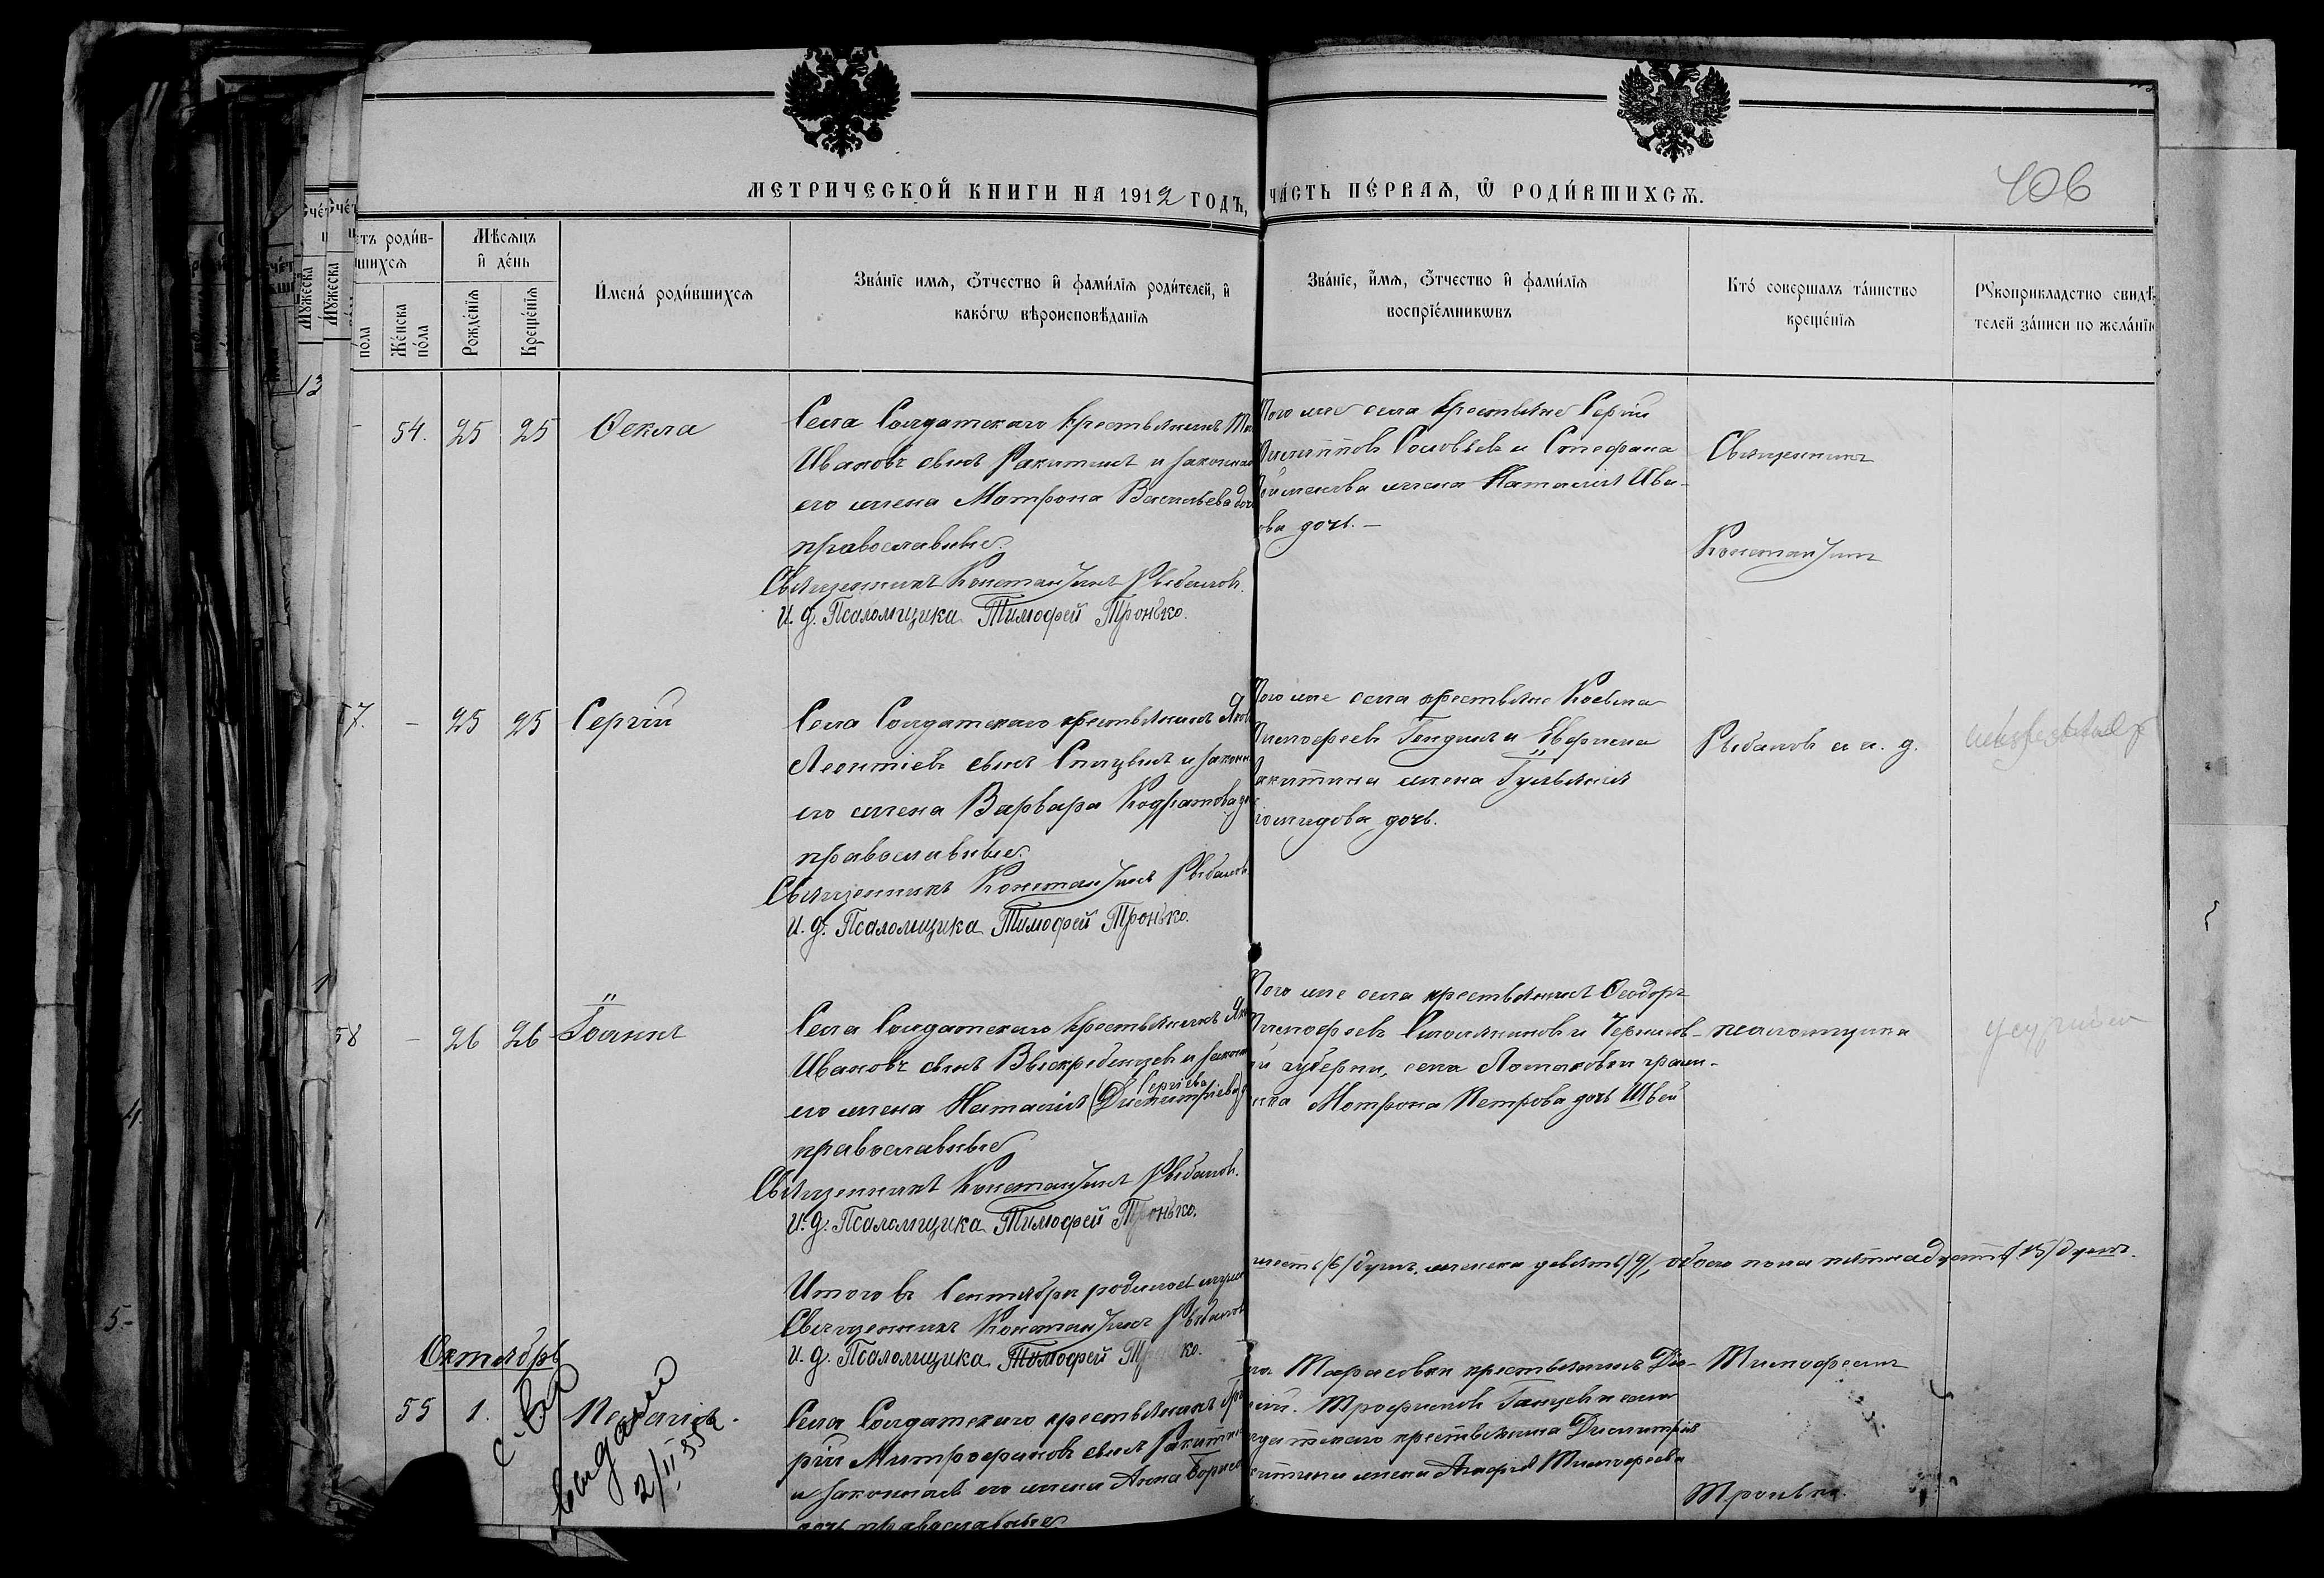 МЕТРИЧЕСКОЙ КНИГИ НА 1912 ГОДЪ,
ЧАСТЬ ПЕРВАЯ, Ѿ РОДИВШИХСЯ.
406
Счетъ родив-
шихся
Мѣсяцъ
и день
Имена родившихся
Званіе имя, отчество и фамилія родителей, и
какогѡ вѣроисповѣданія
Званіе, имя, отчество и фамилія
воспріемникѡвъ
Кто совершалъ таинство
крещенія
Рукоприкладство свидѣ
телей записи по желанію
пола
Женска
пола
Рожденія
Крещенія
54. 25 25 Ѳекла
Села Солдатскаго крестьянинъ
Ивановъ сынъ Ракитинъ и законная
его жена Матрона Васильева дочь
православные.
Священникъ Константинъ Рыбаловъ.
И. д. Псаломщика Тимофей Тронько.
Того же села крестьяне Сергій
Филипповъ Соловьевъ и Стефана
жена Наталія Ива-
ова дочь. —
Священникъ
Константинъ
57. — 25 25 Сергій
Села Солдатскаго крестьянинъ Яков
Леонтіевъ сынъ Спицынъ и законн
его жена Варвара Кодратова
православные.
Священникъ Константинъ Рыбаловъ
И. д. Псаломщика Тимофей Тронько.
Того же села крестьяне Косьма
Тимофеевъ и
Ракитина жена
дочь.
Рыбаловъ и и. д.
58 — 26 26 Іоаннъ
Села Солдатскаго крестьянинъ Яко
Ивановъ сынъ Выскребенцевъ и законн
Сергіева
его жена Наталія (Димитріева)
православные
Священникъ Константинъ Рыбаловъ.
И. д. Псаломщика Тимофей Тронько.
Того же села крестьянинъ Ѳеодоръ
Тимофеевъ и Чернигов-
й губерніи, села граж-
нка Матрона Петрова дочь Швец
псаломщика
Итого въ Сентябрѣ родилось мужск
шесть /6/ душъ, женска девять /9/, обоего пола пятнадцать /15/ душъ.
Священникъ Константинъ Рыбалов
И. д. Псаломщика Тимофей Тронько.
Октябрь
55 1. Пелагія.
с-во
выдано
2/II 55 г.
Села Солдатскаго крестьянинъ Гри
рій Митрофановъ сынъ Ракитин
и законная его жена Анна Борисо
дочь православные
Тарасовки крестьянинъ
Трофимовъ и села
датскаго крестьянина Димитрія
китина жена Агафія Тимофеева
Тимофеемъ
Тронько.